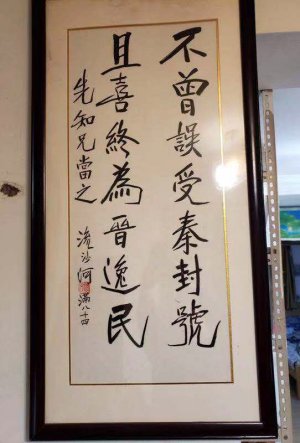 不曾誤受秦封號
且喜終為晉逸民
先知兄當之
流沙河 滿八十四